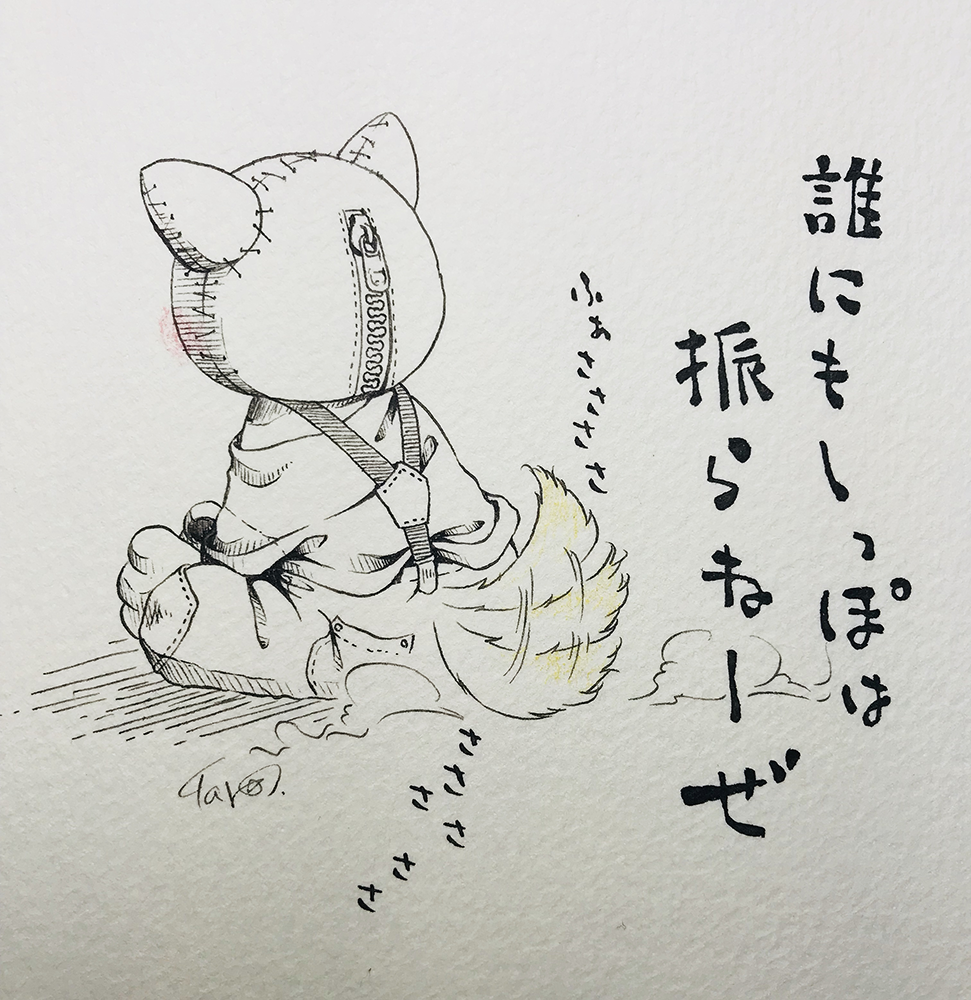 誰にもしっぽは
振らねーぜ
ふぁさささささ
ささささささ
Taro.